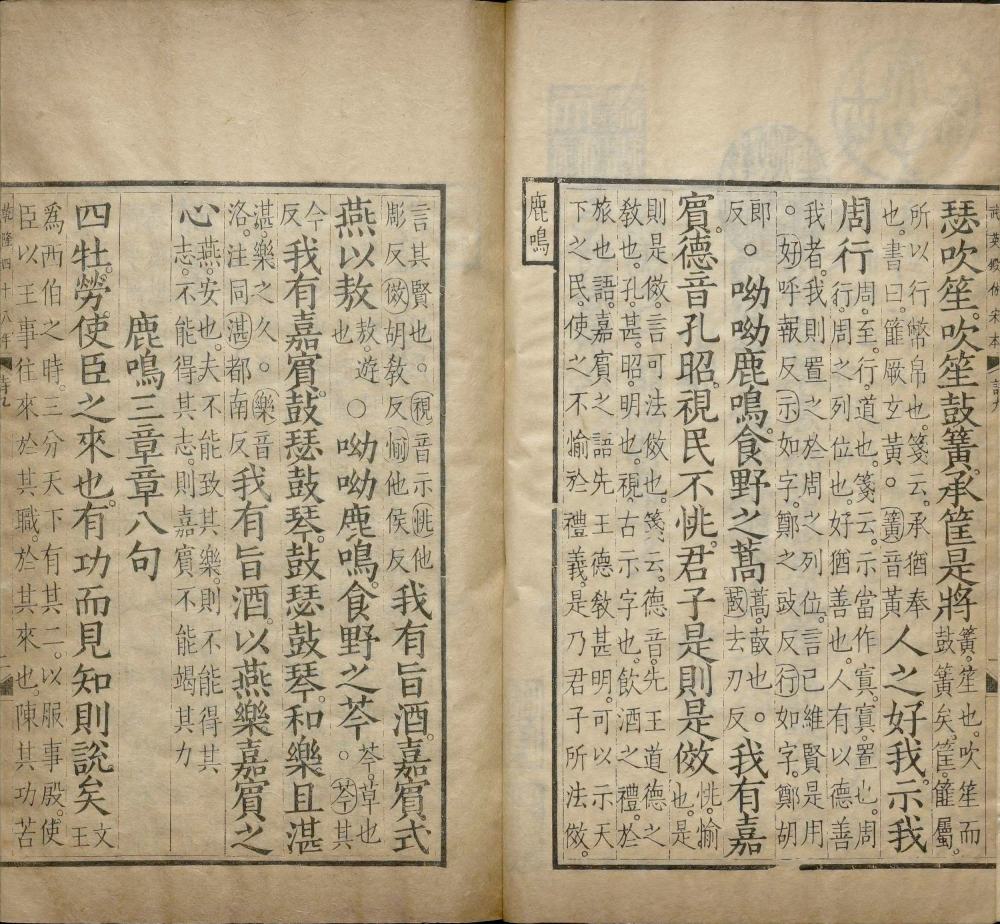 武英殿仿宋本 詩九
瑟吹笙。吹笙鼓簧。承筐是將簧。笙也。吹笙而鼓簧矣。筐。篚屬。
所以行幣帛也。箋云。承猶奉也。書曰。篚厥玄黃。○簧音黃人之好我。示我
周行周。至。行。道也。箋云。示當作寘。寘。置也。周行。周之列位也。好猶善也。人有以德善
我者。我則置之於周之列位。言己維賢是用。○好呼報反示如字。鄭之豉反行如字。鄭胡
郎反○呦呦鹿鳴。食野之蒿蒿。菣也。○菣去刃反我有嘉
賓。德音孔昭。視民不恌。君子是則是傚恌愉也。是
則是傚。言可法傚也。箋云。德音。先王道德之教也。孔。甚。昭。明也。視古示字也。飲酒之禮。於
旅也語。嘉賓之語先王德教甚明。可以示天下之民。使之不愉於禮義。是乃君子所法傚。
鹿鳴
言其賢也。○視音示恌他彫反傚胡教反愉他侯反我有旨酒。嘉賓式
燕以敖敖。遊也○呦呦鹿鳴。食野之芩芩。草也。○芩其
今反我有嘉賓。鼓瑟鼓琴。鼓瑟鼓琴。和樂且湛
湛樂之久。○樂音洛。注同湛都南反我有旨酒。以燕樂嘉賓之
心燕。安也。夫不能致其樂。則不能得其志。不能得其志。則嘉賓不能竭其力
鹿鳴三章章八句
四牡。勞使臣之來也。有功而見知則說矣文王
爲西伯之時。三分天下有其二。以服事殷。使臣以王事往來於其職。於其來也。陳其功苦
乾隆四十八年 詩九